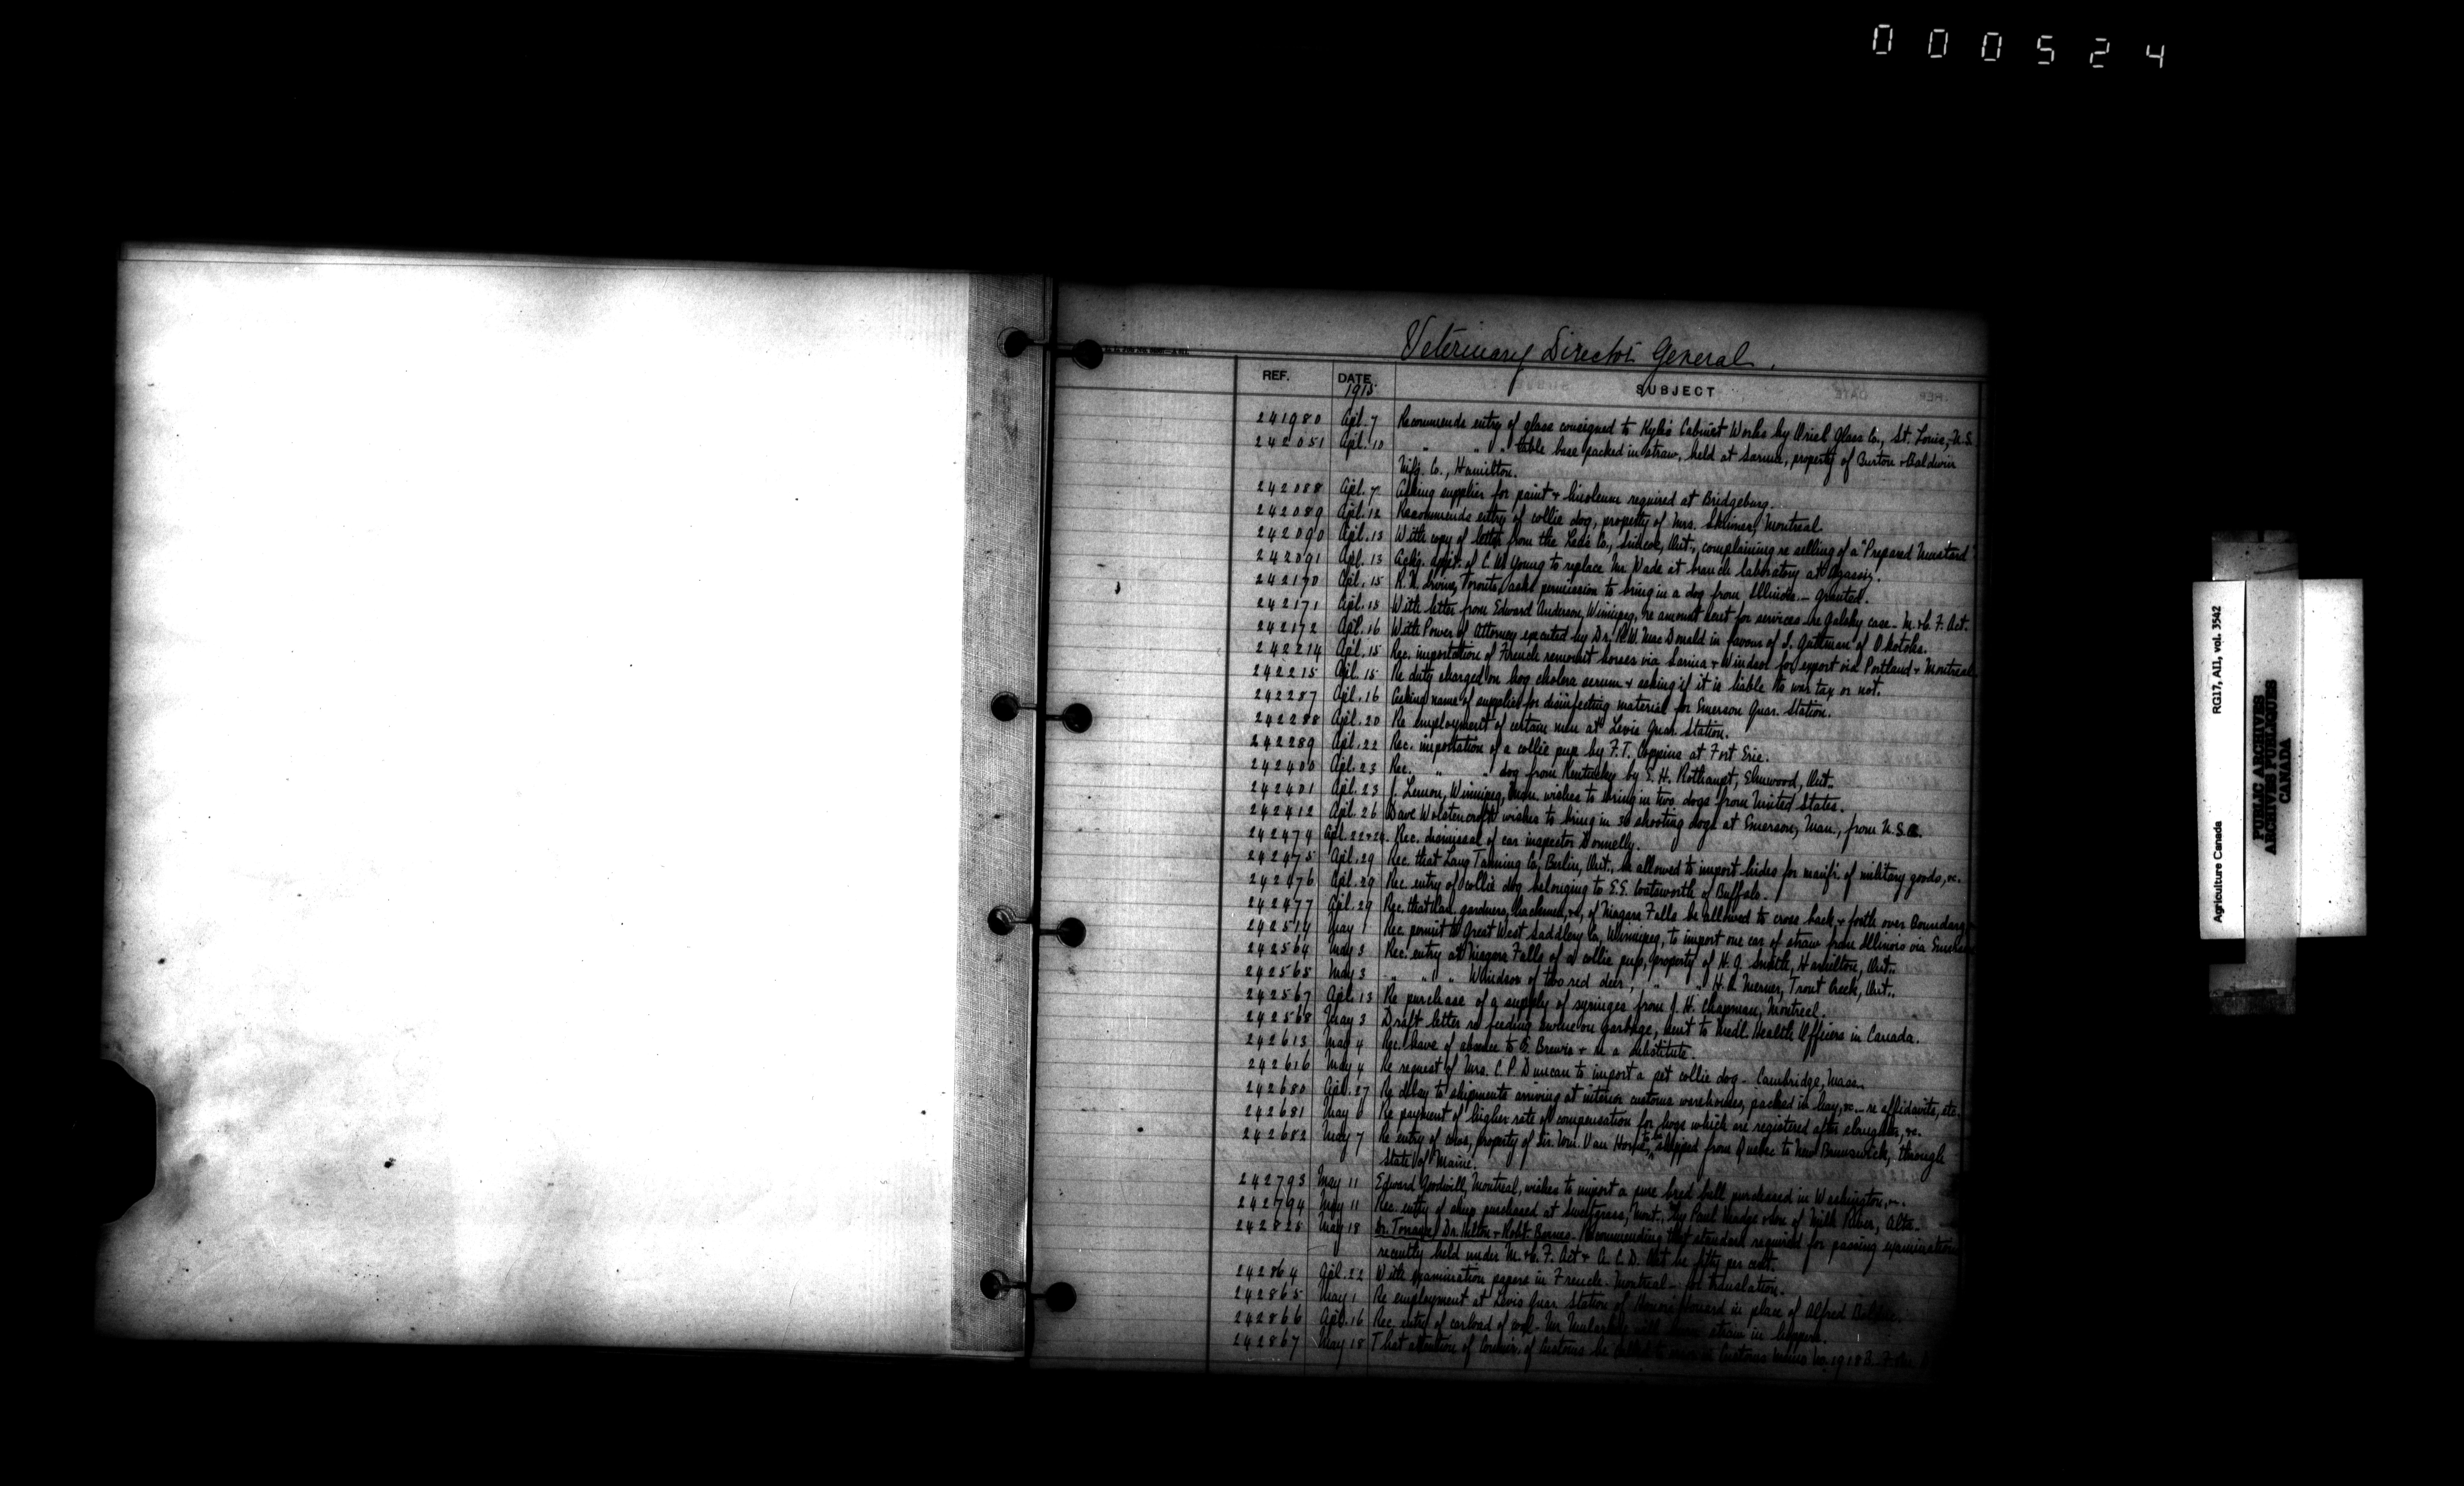 000524
Veterinary Director General.
REF. DATE SUBJECT
1915
241980 Apl. 7 Recommends entry of glass consigned to Kyle's Cabinet Works by Oriel Glass Co., St. Louis, U.S.
242051 Apl. 10 " " " table base packed in straw, held at Sarnia, property of Burton & Baldwin
Mfg. Co., Hamilton.
242088 Apl. 7 Asking supplies for paint & linoleum required at Bridgeburg.
242089 Apl. 12 Recommends entry of collie dog, property of Mrs. Skinner, Montreal.
242090 Apl. 13 With copy of letter from the Co., Simcoe, Ont., complaining re selling of a "Prepared Mustard"
242091 Apl. 13 Ackg. appt. of C. W. Young to replace Mr. Wade at branch laboratory at Agassiz.
242170 Apl. 15 R. N. Irvine, Toronto, asks permission to bring in a dog from Illinois. - granted.
242171 Apl. 15 With letter from Edward Anderson, Winnipeg, re amount sent for services re Galsky case - M. & C. F. Act.
242172 Apl. 16 With Power of Attorney executed by Dr. R. W. MacDonald in favour of I. Guttman of Okotoks.
242214 Apl. 15 Rec. importation of French remount horses via Sarnia & Windsor for export via Portland & Montreal.
242215 Apl. 15 Re duty charged on hog cholera serum & asking if it is liable to war tax or not.
242287 Apl. 16 Asking name of supplier for disinfecting material for Emerson Quar. Station.
242288 Apl. 20 Re employment of certain men at Levis Quar. Station.
242289 Apl. 22 Rec. importation of a collie pup by F. T. Coppins at Fort Erie.
242400 Apl. 23 Rec. " " dog from Kentucky by E. H. Rothaupt, Elmwood, Ont..
242401 Apl. 23 J. Lemon, Winnipeg, Man. wishes to bring in two dogs from United States.
242412 Apl. 26 Dave Wolstencroft wishes to bring in 30 shooting dogs at Emerson, Man., from U.S.A.
242474 Apl. 22 & 24. Rec. dismissal of car inspector Donnelly.
242475 Apl. 29 Rec. that Lang Tanning Co., Berlin, Ont., be allowed to import hides for manfr. of military goods, &c.
242476 Apl. 29 Rec. entry of collie dog belonging to E. E. Coatsworth of Buffalo.
242477 Apl. 29 Rec. that gardners, hackmen, &c, of Niagara Falls be allowed to cross back & forth over boundary
242514 May 1 Rec. permit to Great West Saddlery Co., Winnipeg, to import one car of straw from Illinois via Emerson
242564 May 3 Rec. entry at Niagara Falls of a collie pup, property of H. G. Smith, Hamilton, Ont..
242565 May 3 " " " Windsor of two red deer, " " H. A. Merner, Trout Creek, Ont..
242567 Apl. 13 Re purchase of a supply of syringes from J. H. Chapman, Montreal.
242568 May 3 Draft letter re feeding swine on garbage, sent to Medl. Health Officers in Canada.
242613 May 4 Rec. leave of absence to G. Brewis & re a substitute.
242616 May 4 Re request of Mrs. C. P. Duncan to import a pet collie dog - Cambridge, Mass.
242680 Apl. 27 Re delay to shipments arriving at interior customs warehouses, packed in hay, &c - re affidavits, etc.
242681 May 6 Re payment of higher rate of compensation for hogs which are registered after slaughter, &c.
242682 May 7 Re entry of cows, property of Sir. Wm. Van Horne, to be shipped from Quebec to New Brunswick, through
State of Maine.
242793 May 11 Edward Goodwill, Montreal, wishes to import a pure bred bull purchased in Washington, &c.
242794 May 11 Rec. entry of sheep purchased at Sweetgrass, Mont., by Paul Madge of Milk River, Alta.
242825 May 18 Dr. Torrance, Dr. Hilton & Robt. Barnes. Recommending that standard required for passing examinations
recently held under M. & C. F. Act & A. C. D. Act be fifty per cent.
242864 Apl. 22 With examination papers in French - Montreal - for translation.
242865 May 1 Re employment at Levis Quar. Station of Honoré in place of Alfred
242866 Apl. 16 Rec. entry of carload of straw in
242867 May 18 That attention of Commr. of Customs be Customs Memo No. 1918 B.
Agriculture Canada RG17, AII, vol. 3542
PUBLIC ARCHIVES
ARCHIVES PUBLIQUES
CANADA